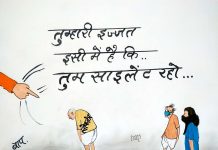 तुम्हारी इज्जत
इसी में है कि..
तुम साइलेंट रहो...